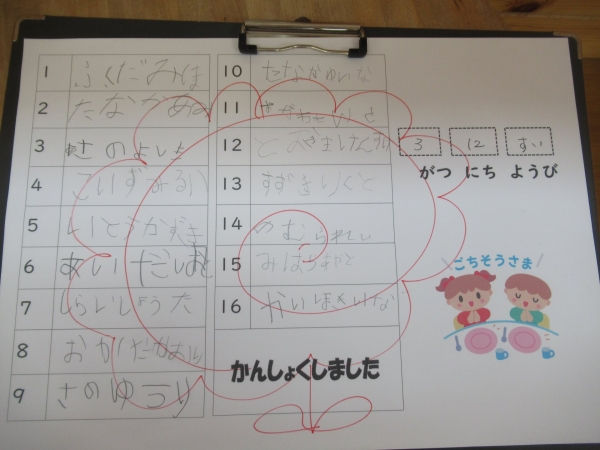 1 ふくだみほ
2 たなかあ
3 きさのよしき
4 こいずみはる
5 いとうかずま
6 あいだしお
7 しらいしょうた
8 おかだかおり
9 さのゆうり
10 たなかゆいな
11
12 とやまけんた
13 すずきりくと
14 のむられい
15 みはらあやと
16 かい
かんしょくしました
3 12 すい
がつ にち ようび
ごちそうさま